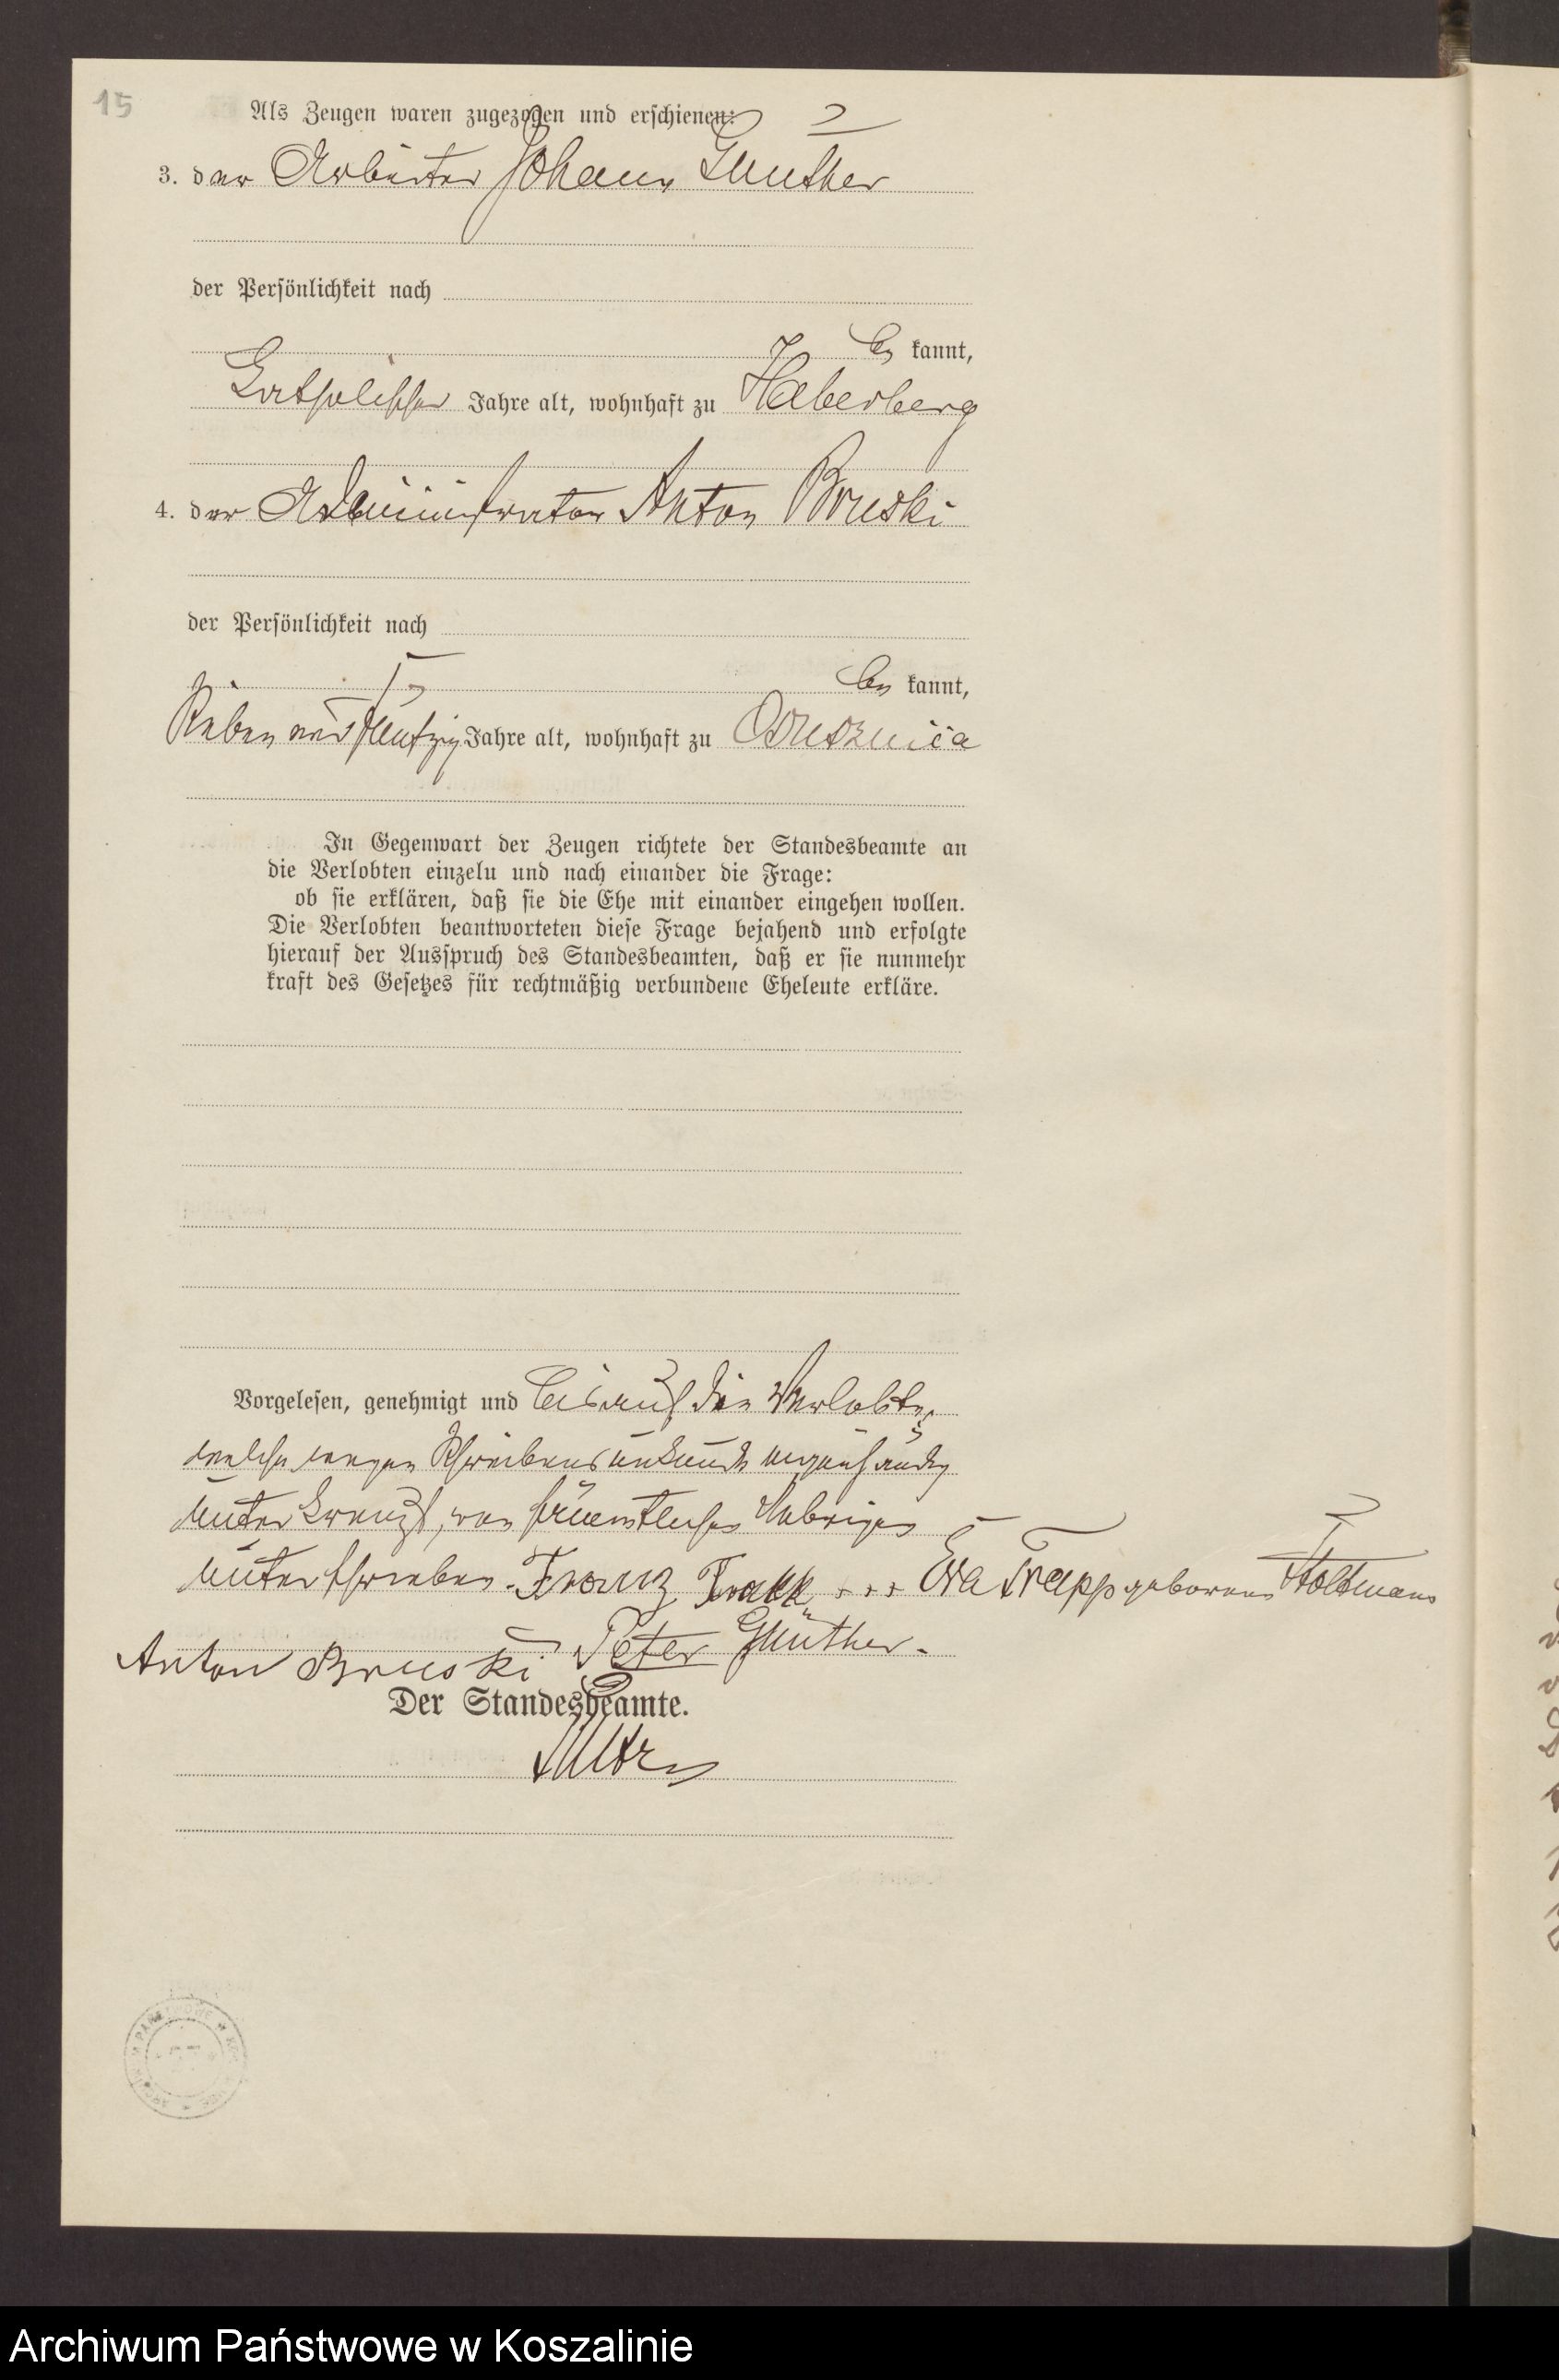 15
Als Zeugen waren zugezogen und erschienen:
3. der Arbeiter Johann Günther
der Persönlichkeit nach
be kannt,
Katholischer Jahre alt, wohnhaft zu Haberberg
4. der Administrator Anton Bruski
der Persönlichkeit nach
be kannt,
Sieben und fünfzig Jahre alt, wohnhaft zu Ossusznica
In Gegenwart der Zeugen richtete der Standesbeamte an
die Verlobten einzeln und nach einander die Frage:
ob sie erklären, daß sie die Ehe mit einander eingehen wollen.
Die Verlobten beantworteten diese Frage bejahend und erfolgte
hierauf der Ausspruch des Standesbeamten, daß er sie nunmehr
kraft des Gesetzes für rechtmäßig verbundene Eheleute erkläre.
Vorgelesen, genehmigt und bis auf die Verlobte,
welche wegen Schreibensunkunde eigenhändig
unterkreuzt, von sämmtlichen Uebrigen
unterschrieben. Franz Trapp + + + Eva Trapp geborene Stoltmann
Anton Bruski Peter Günther.
Der Standesbeamte.
Archiwum Państwowe w Koszalinie